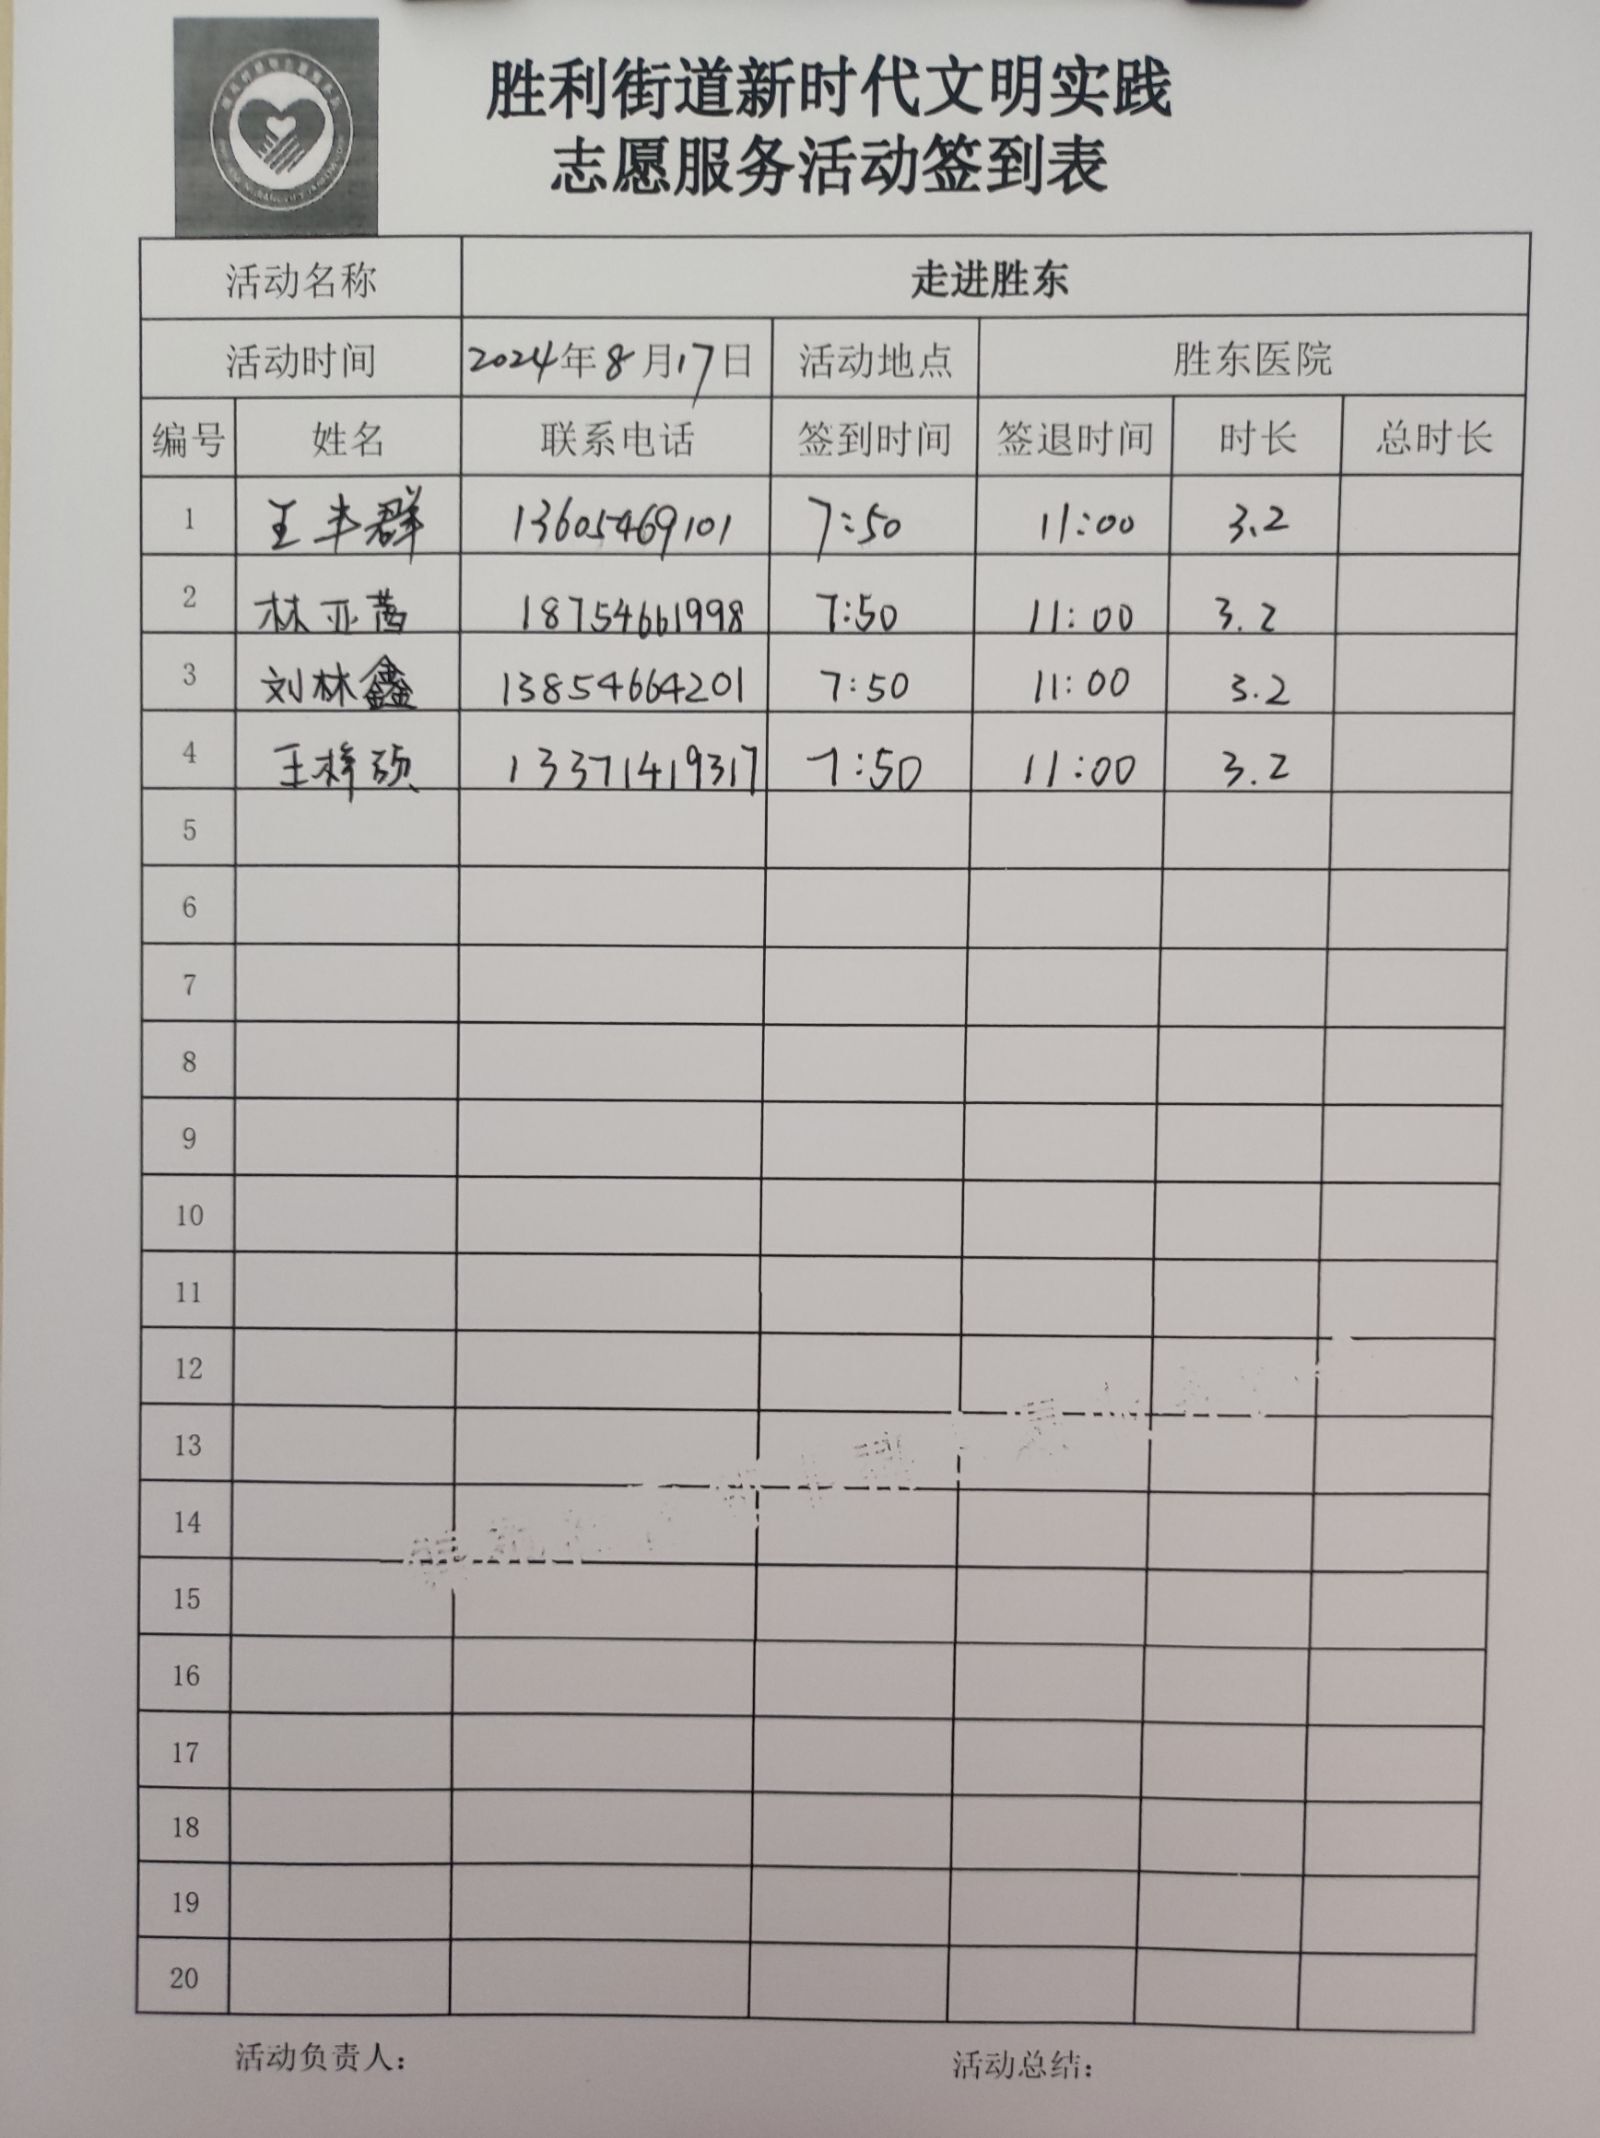 胜利街道新时代文明实践
志愿服务活动签到表
活动名称 走进胜东
活动时间 2024年8月17日 活动地点 胜东医院
编号 姓名 联系电话 签到时间 签退时间 时长 总时长
1 王丰群 13605469101 7:50 11:00 3.2
2 林亚茜 18754661998 7:50 11:00 3.2
3 刘林鑫 13854664201 7:50 11:00 3.2
4 王梓硕 13371419317 7:50 11:00 3.2
5
6
7
8
9
10
11
12
13
14
15
16
17
18
19
20
活动负责人： 活动总结：